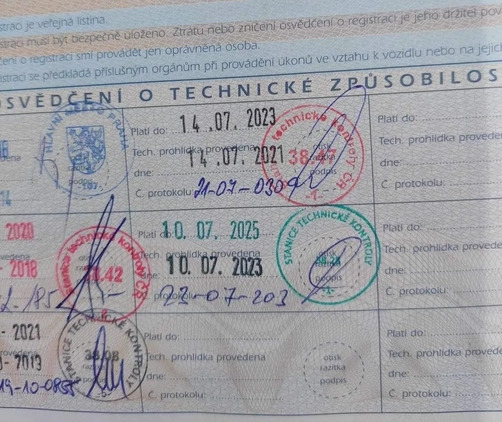 straci je veřejná listina.
straci musí být bezpečně uloženo. Ztrátu nebo zničení osvědčení o registraci je jeho držitel pov
čení o registraci smí provádět jen oprávněná osoba.
straci se předkládá příslušným orgánům při provádění úkonů ve vztahu k vozidlu nebo na jejic
OSVĚDČENÍ O TECHNICKÉ ZPŮSOBILOS
HLAVNÍ MĚSTO PRAHA
Platí do: 14 .07. 2023
Tech. prohlídka provedena
dne: 14 .07. 2021
Č. protokolu: 21-07-0309
technické kontroly ČR
38.47
otisk
razítka
podpis
-1-
Platí do:
Tech. prohlídka provedena
dne:
Č. protokolu:
2020
2018
technické kontroly ČR
.42
Platí do: 10. 07. 2025
Tech. prohlídka provedena
dne: 10. 07. 2023
protokolu: 23-07-203
STANICE TECHNICKÉ KONTROLY
otisk
podpis
-1-
Platí do:
Tech. prohlídka provedena
dne:
Č. protokolu:
- 2021
2019
19-10-0855
STANICE TECHNICKÉ KONTROLY
38.08
Platí do:
Tech. prohlídka provedena
dne:
Č. protokolu:
otisk
razítka
podpis
Platí do:
Tech. prohlídka provede
dne:
Č. protokolu: